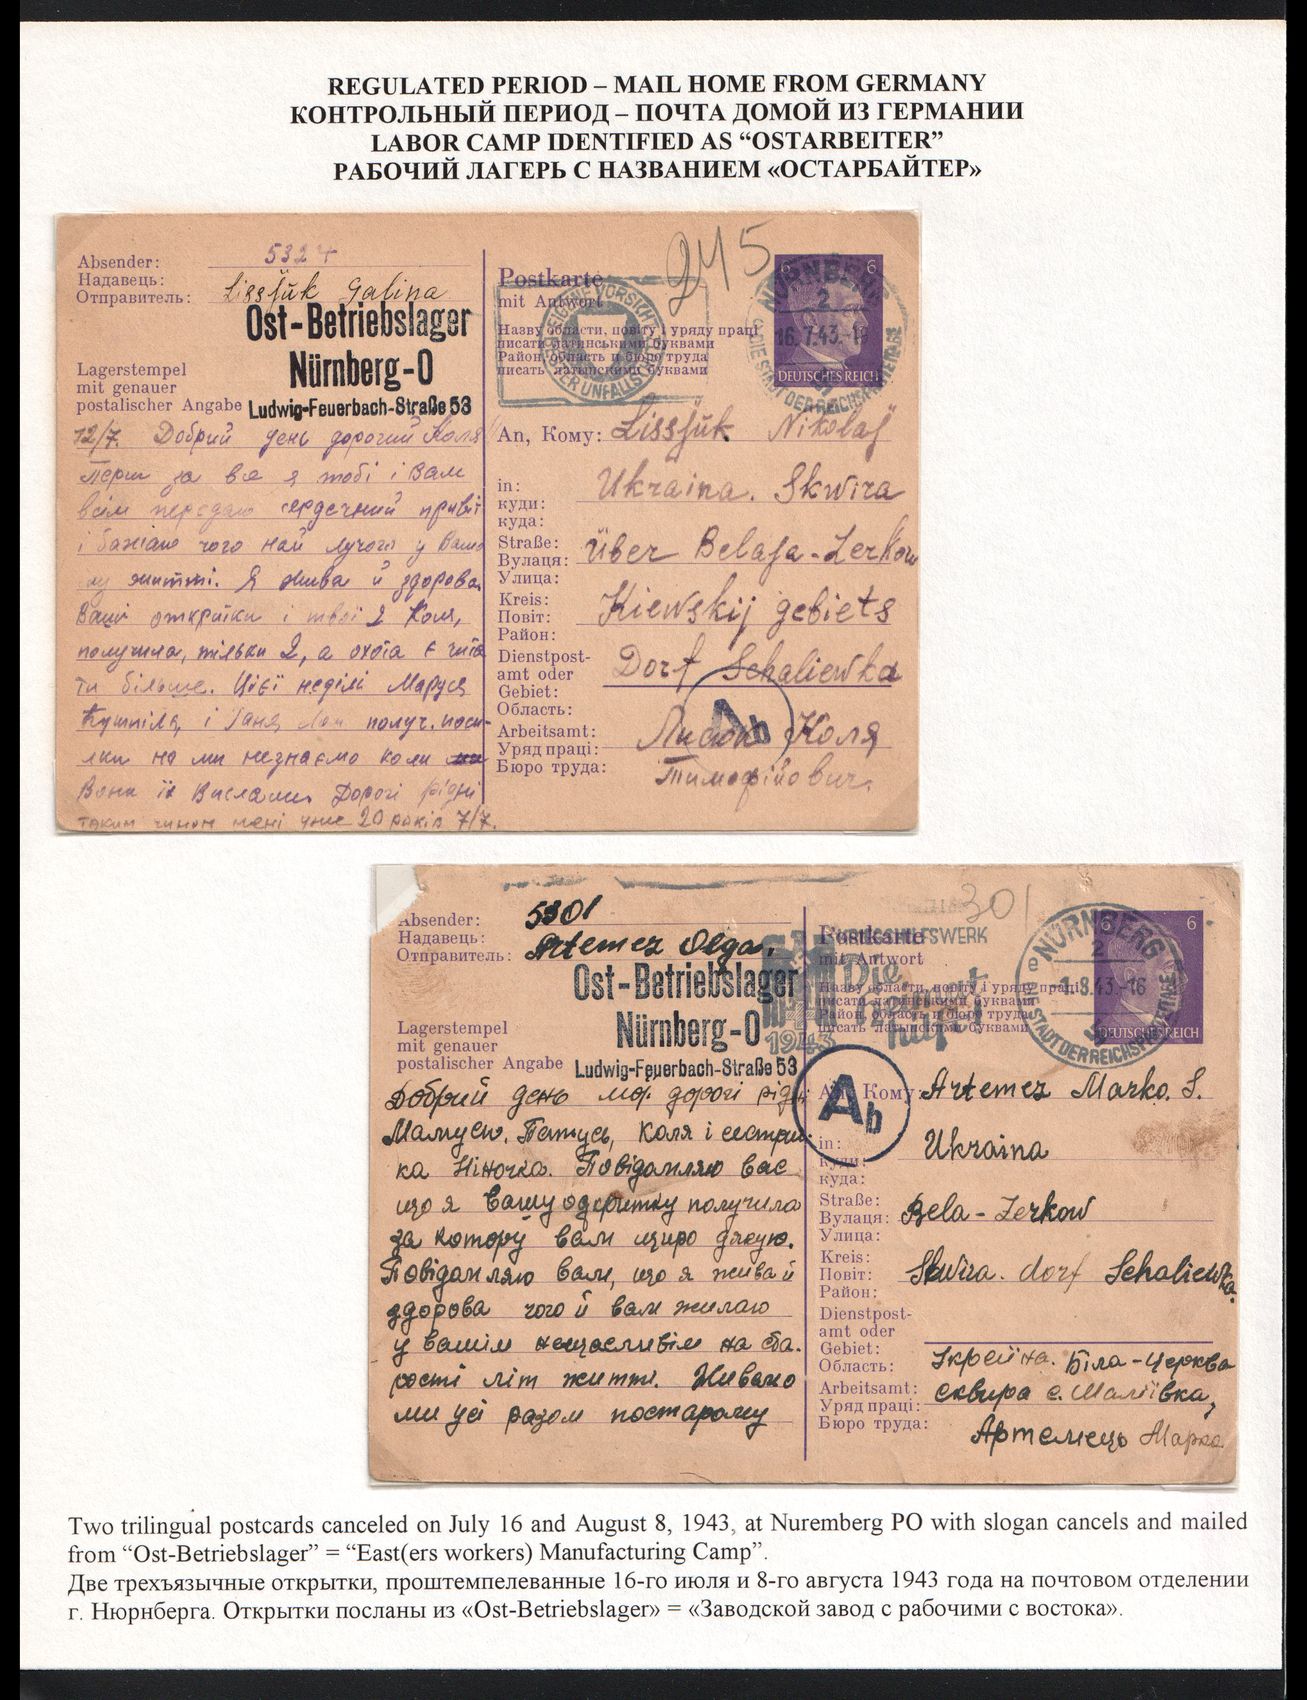 REGULATED PERIOD – MAIL HOME FROM GERMANY
КОНТРОЛЬНЫЙ ПЕРИОД – ПОЧТА ДОМОЙ ИЗ ГЕРМАНИИ
LABOR CAMP IDENTIFIED AS “OSTARBEITER”
РАБОЧИЙ ЛАГЕРЬ С НАЗВАНИЕМ «ОСТАРБАЙТЕР»
Absender: 5324
Надавець:
Отправитель: Lissjuk Galina
Ost-Betriebslager
Nürnberg-O
Ludwig-Feuerbach-Straße 53
Lagerstempel
mit genauer
postalischer Angabe
12/7. Добрий день дорогий Коля
Перш за все я тобі і Вам
всім передаю сердечний привіт
і бажаю чого най лучого у Вашо
му житті. Я жива й здорова.
Ваші открітки і твої 2 Коля,
получила, тільки 2, а охота є чита
ти більше. Цієї неділі Маруся
і Ганя получ. поси-
лки но ми незнаємо коли
Вони їх Вислали. Дорогі рідні
таким чином мені уже 20 років 7/7.
Postkarte
mit Antwort
Назву области, повіту і уряду праці
писати латинськими буквами
Район, область и бюро труда
писать латынскими буквами
245
NÜRNBERG
2
16.7.43.-19
DIE STADT DER REICHSPARTEITAGE
6
DEUTSCHES REICH
An, Кому: Lissjuk Nikolaj
in: Ukraina. Skwira
куди:
куда:
Straße: über Belaja-Zerkow
Вулаця:
Улица:
Kreis: Kiewskij gebiets
Повіт:
Район:
Dienstpost-
amt oder
Gebiet: Dorf Schaliewka
Область:
Ab
Arbeitsamt:
Уряд праці: Коля
Бюро труда: Тимофійович.
Absender: 5301
Надавець:
Отправитель: Artemez Olga.
Ost-Betriebslager
Nürnberg-O
Ludwig-Feuerbach-Straße 53
Lagerstempel
mit genauer
postalischer Angabe
Добрий день мої дорогі рідні
Мамусю, Татусь, Коля і сестрич
ка Ніночка. Повідомляю вас
що я вашу одкритку получила
за котору вам щиро дякую.
Повідомляю вам, що я жива й
здорова чого й вам жилаю
у вашім нещасливім на ста.
рості літ життї. Живемо
ми усі разом постарому
Postkarte
mit Antwort
Назву области, повіту і уряду праці
писати латинськими буквами
Район, область и бюро труда
писать латынскими буквами
KRIEGSHILFSWERK
1943
301
NÜRNBERG
2
8.43.-16
DIE STADT DER REICHSPARTEITAGE
6
DEUTSCHES REICH
Ab
An, Кому: Artemez Marko. S.
in: Ukraina
куди:
куда:
Straße: Bela-Zerkow
Вулаця:
Улица:
Kreis:
Повіт: Skwira. dorf Schaliewka.
Район:
Dienstpost-
amt oder
Gebiet:
Область: Україна. Біла-Церква
Arbeitsamt: сквира с. Шаліївка,
Уряд праці:
Бюро труда: Артемець Марко
Two trilingual postcards canceled on July 16 and August 8, 1943, at Nuremberg PO with slogan cancels and mailed
from “Ost-Betriebslager” = “East(ers workers) Manufacturing Camp”.
Две трехъязычные открытки, проштемпелеванные 16-го июля и 8-го августа 1943 года на почтовом отделении
г. Нюрнберга. Открытки посланы из «Ost-Betriebslager» = «Заводской завод с рабочими с востока».